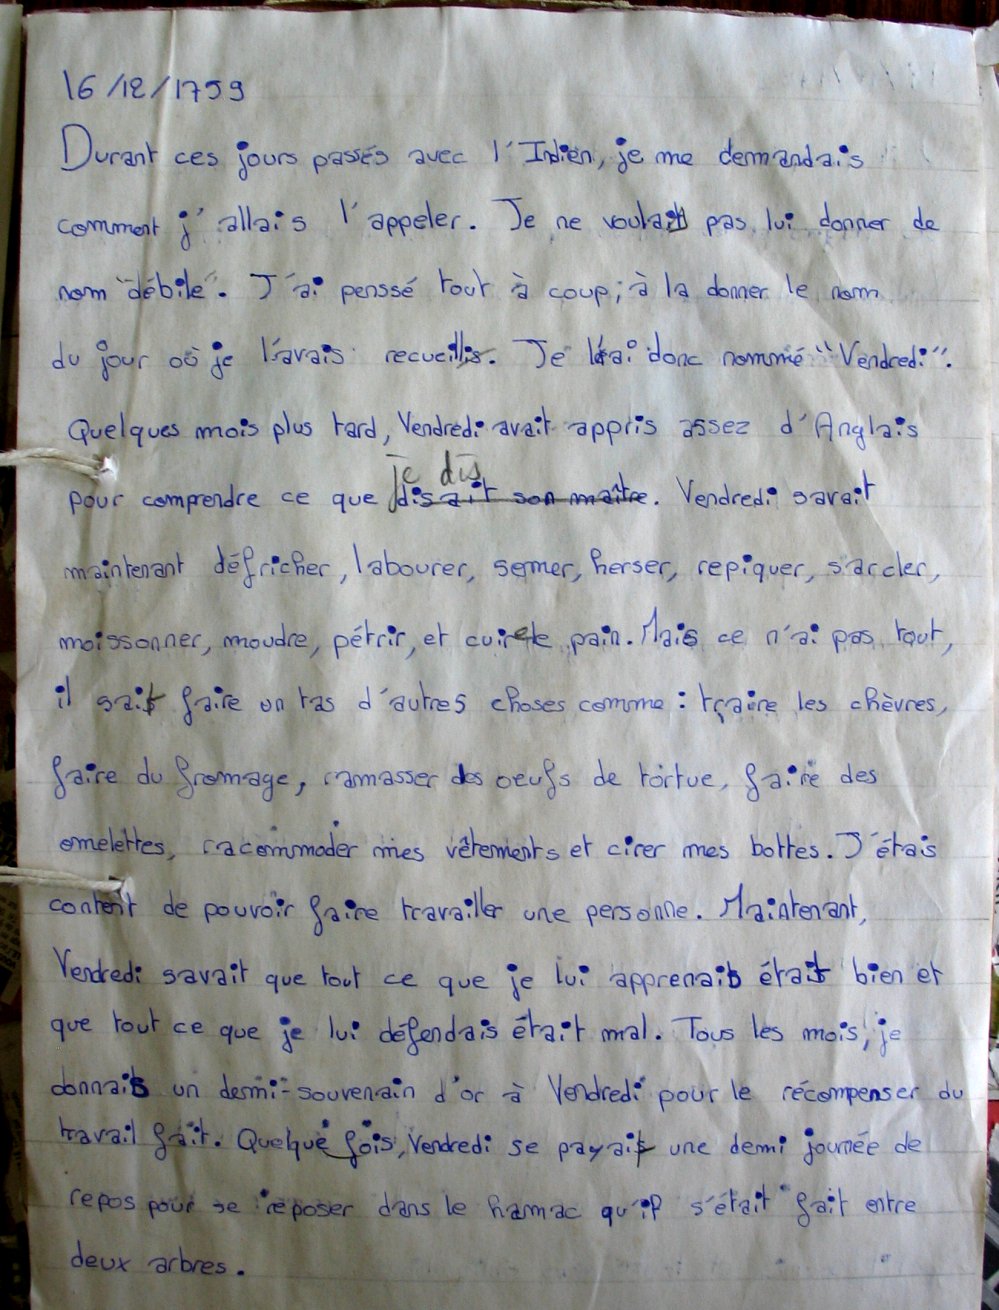 16/12/1759
Durant ces jours passés avec l'Indien, je me demandais
comment j'allais l'appeler. Je ne voulait pas lui donner de
nom "débile". J'ai penssé tout à coup; à la donner le nom
du jour où je l'avais recueillis. Je l'ai donc nommé "Vendredi".
Quelques mois plus tard, Vendredi avait appris assez d'Anglais
je dis
pour comprendre ce que disait son maître. Vendredi savait
maintenant défricher, labourer, semer, herser, repiquer, sarcler,
moissonner, moudre, pétrir, et cuire le pain. Mais ce n'ai pas tout,
il sait faire un tas d'autres choses comme : traire les chèvres,
faire du fromage, ramasser des oeufs de tortue, faire des
omelettes, racommoder mes vêtements et cirer mes bottes. J'étais
content de pouvoir faire travailler une personne. Maintenant,
Vendredi savait que tout ce que je lui apprenais était bien et
que tout ce que je lui défendais était mal. Tous les mois, je
donnais un demi-souvenain d'or à Vendredi pour le récompenser du
travail fait. Quelque fois, Vendredi se payait une demi journée de
repos pour se reposer dans le hamac qu'il s'était fait entre
deux arbres.